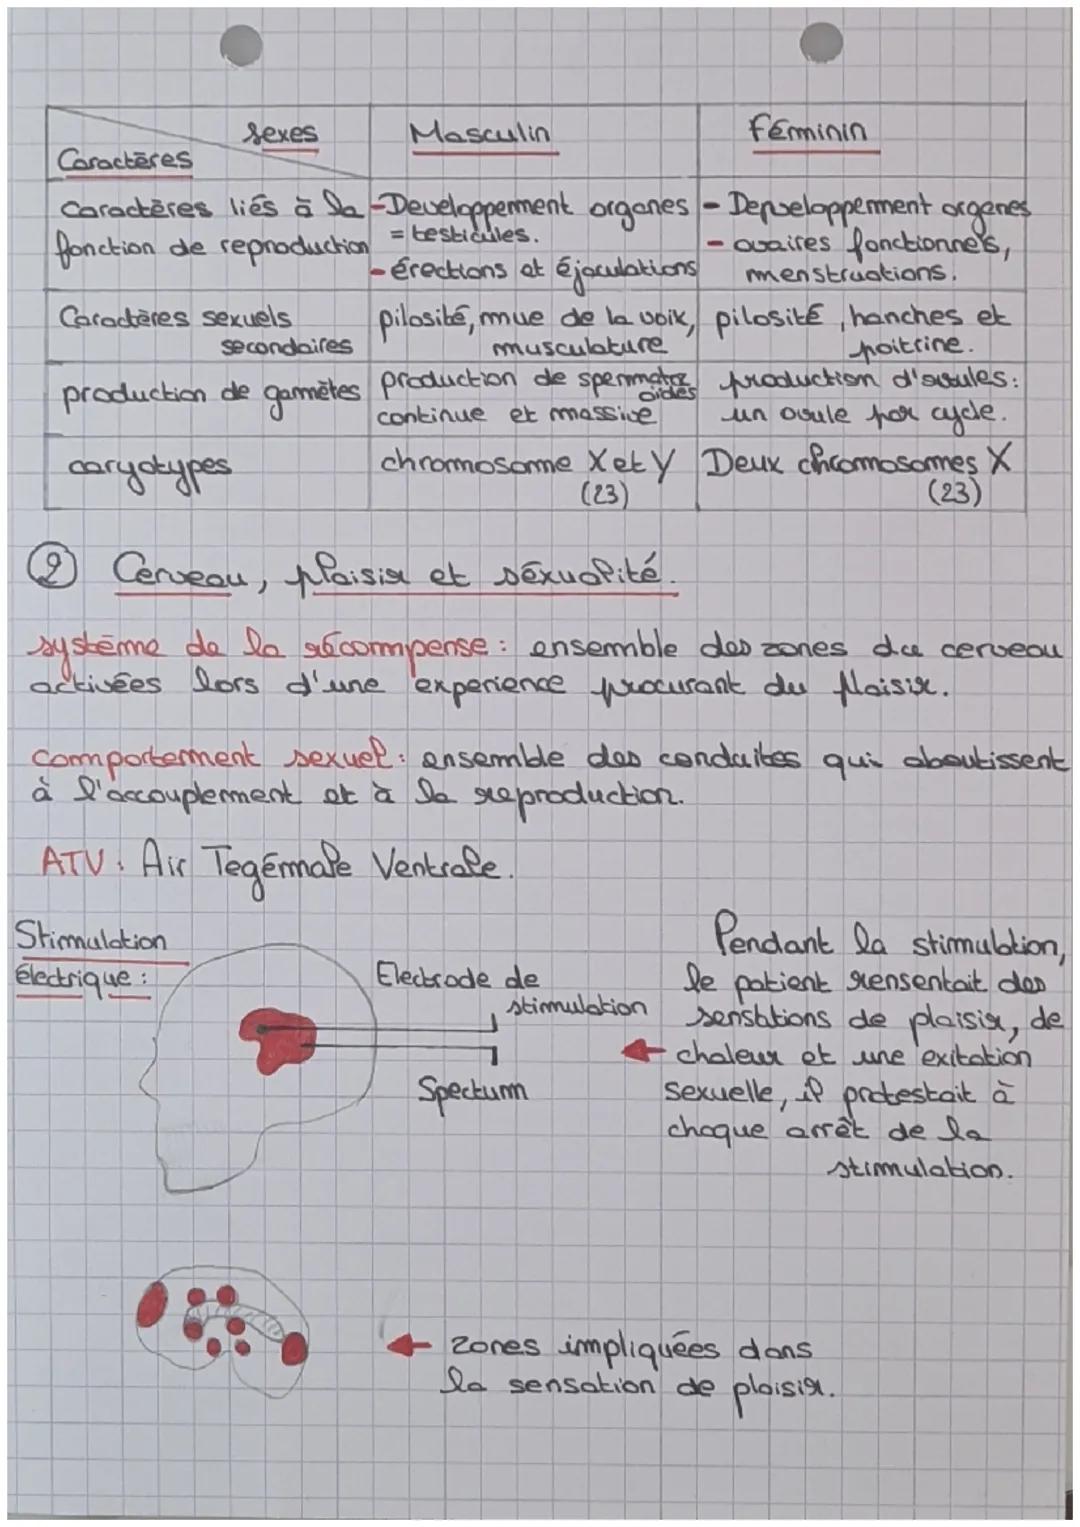 sexes
Caractères
Masculin
Féminin
Caractères liés à la
fonction de reproduction
-Developpement organes
= testicules.
-érections et éjaculations
- Depveloppement organes
- ovaires fonctionnels,
menstruations.
Caractères sexuels
secondaires
pilosité, mue de la voix,
musculature
pilosité, hanches et
poitrine.
production de gamètes
production de spermatoz
oides
continue et massive
production d'ovules:
un ovule par cycle.
caryotypes
chromosome X et Y
(23)
Deux chromosomes X
(23)
② Cerveau, plaisir et séxualité.
système de la récompense : ensemble des zones du cerveau
activées lors d'une experience procurant du plaisir.
comportement sexuel : ensemble des conduites qui aboutissent
à l'accouplement et à la reproduction.
ATV : Air Tegémale Ventrale.
Stimulation
électrique :
Electrode de
stimulation
Spectum
Pendant la stimulation,
le patient rensentait des
senstations de plaisir, de
chaleur et une exitation
sexuelle, il protestait à
chaque arrêt de la
stimulation.
zones impliquées dans
la sensation de plaisir.